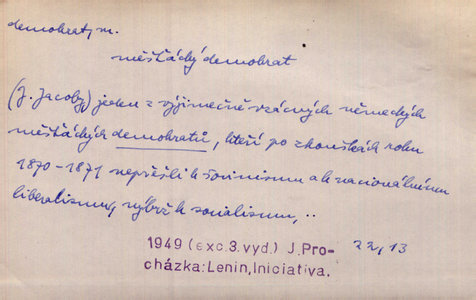 demokrat, m.
měšťácký demokrat
(J. Jacoby) jeden z výjimečně vzácných německých
měšťáckých demokratů, kteří po zkouškách roku
1870-1871 nepřešli k šovinismu a k nacionálnímu
liberalismu, nýbrž k socialismu, ..
1949 (exc. 3. vyd.) J. Pro-
cházka: Lenin, Iniciativa.
22, 13